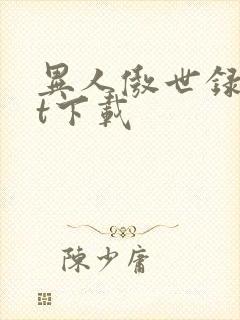 異人傲世録
t下載
陳少庸